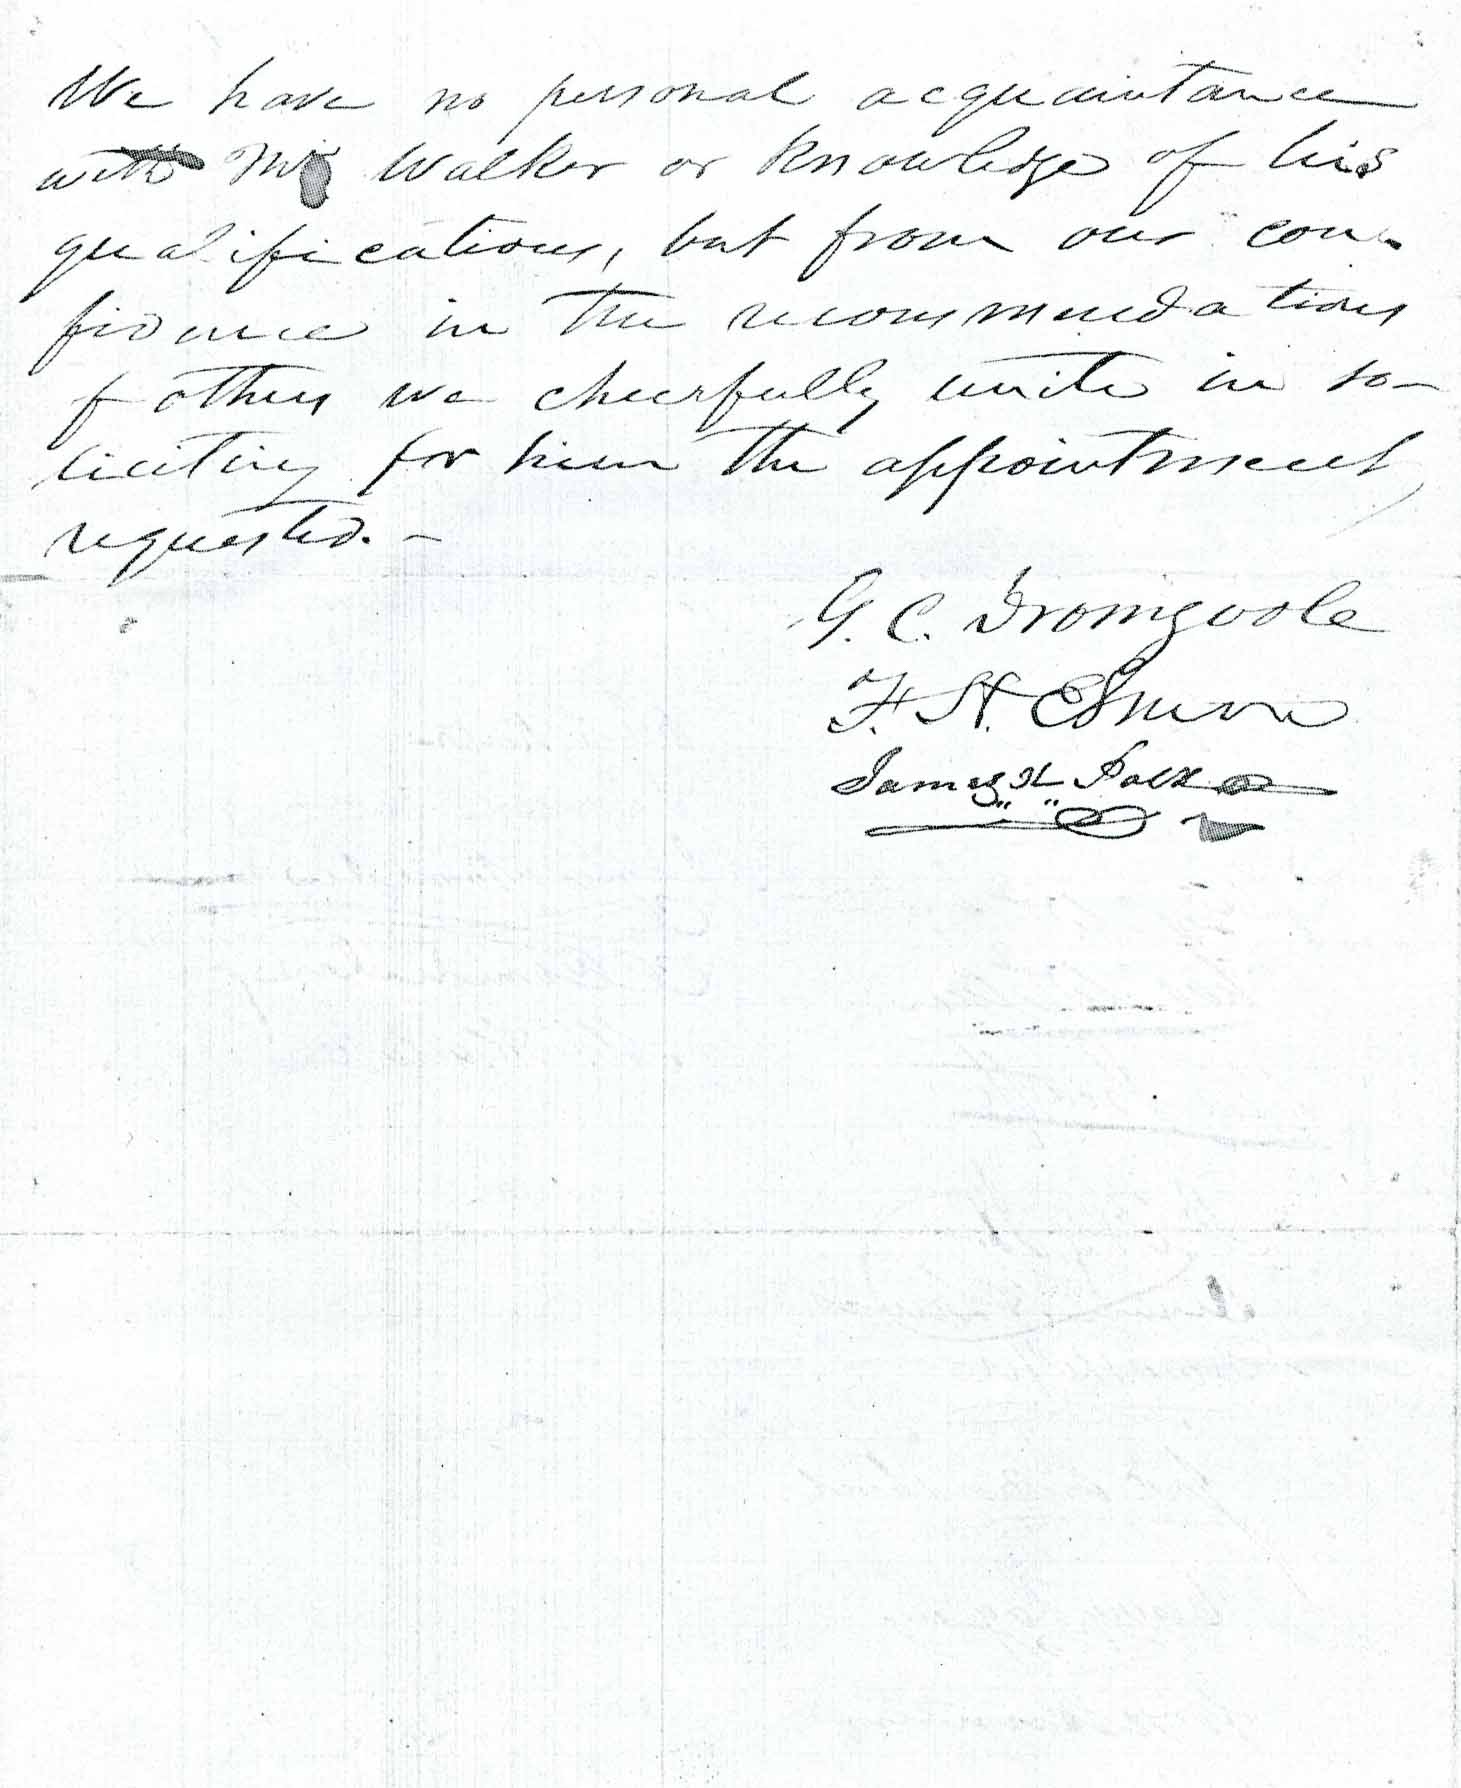 We have no personal acquaintance
with Mr Walker or knowledge of his
qualifications, but from our con-
fidence in the recommendations
of others we cheerfully unite in so-
liciting for him the appointment
requested. -
G. C. Dromgoole
F. H. Elmore
James K Polk